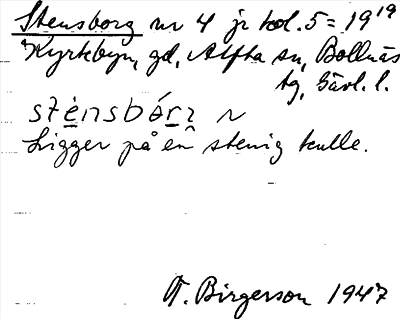 Stensborg nr 4 jr kol. 5 = 19 19
Kyrkbyn, gd, Alfta sn, Bollnäs
tg, Gävl. l.
Ligger på en stenig kulle.
T. Birgerson 1947